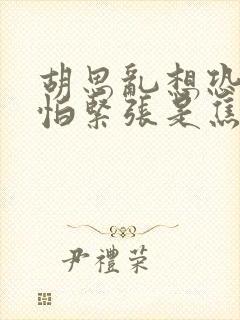 胡思亂想恐
怕緊張是焦
尹禮榮